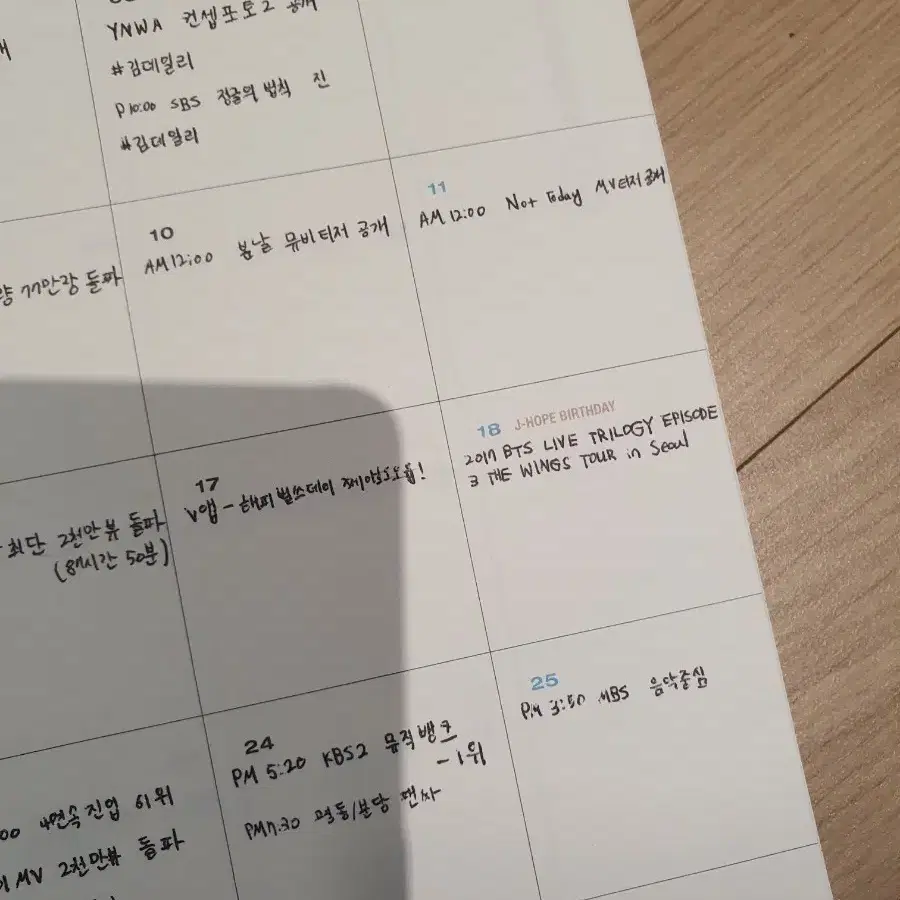 YNWA 컨셉포토2 공개
#김데일리
P10:00 SBS 정글의 법칙 진
#김데일리
77만장 돌파
10
AM12:00 봄날 뮤비티저 공개
11
AM 12:00 Not Today MV티저공개
최단 2천만뷰 돌파
(87시간 50분)
17
V앱 - 해피벌쓰데이 제이홉!
18 J-HOPE BIRTHDAY
2017 BTS LIVE TRILOGY EPISODE
3 THE WINGS TOUR in Seoul
00 4연속진입 61위
MV 2천만뷰 돌파
24
PM 5:20 KBS2 뮤직뱅크
-1위
PM7:30 팬싸
25
PM 3:50 MBS 음악중심